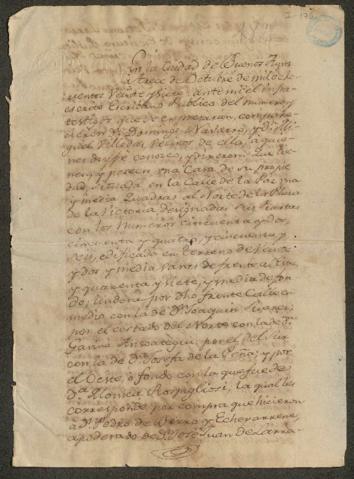 En la Ciudad de Buenos Ayres
a trece de Octubre de mil ocho
cientos Veinte y siete: ante mi el infras
crito Escribano Publico del numero y
testigos que se expresaran, compare
cieron Dn Domingo Navarro, y Dn Mi
guel Villodas, Vecinos de ella, a quie
nes doy fe conosco, y dixeron: que tie
nen y poseen una Casa de su propie
dad, situada en la Calle de la Paz una
y media quadras al Norte de la Plaza
de la Victoria designadas sus Puertas
con los Numeros Cincuenta y dos,
cincuenta y quatro, y cincuenta y
seis, edificada en terreno de
y dos y media varas de frente al
y quarenta y siete, y media de fon
do; lindera por dho frente Calle en
media con la de Dn Joaquin Suarez,
por el costado del Norte con la de Dn
Gavino Ansoategui, por el del Sur
con la de Da Josefa de la Peña; y por
el Oeste, o fondo con la que fue de
Da Monica Raspigliosi, la qual les
corresponde por compra que hicieron
a Dn Pedro de Berro y Echevarrene,
apoderado de Dn José Juan de Larra